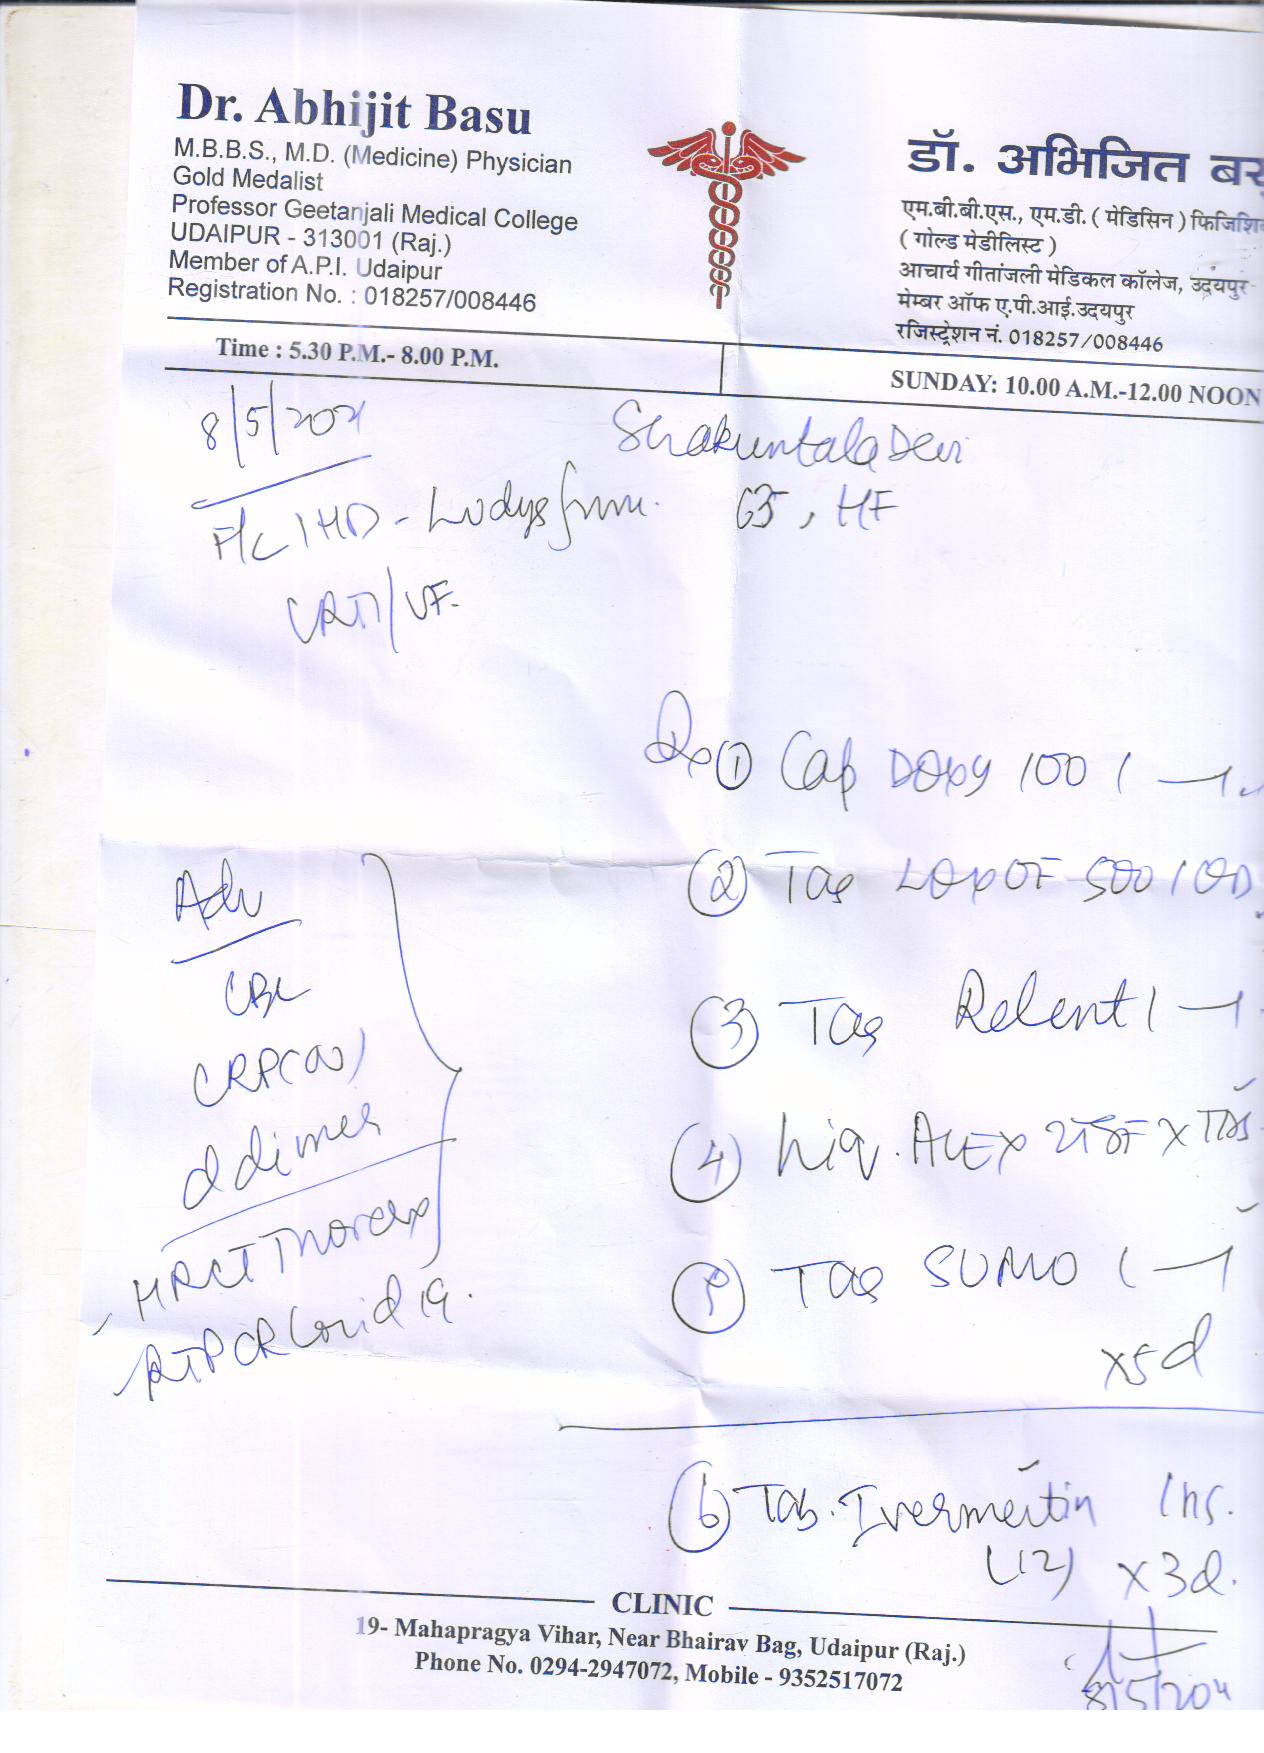 Dr. Abhijit Basu
M.B.B.S., M.D. (Medicine) Physician
Gold Medalist
Professor Geetanjali Medical College
UDAIPUR - 313001 (Raj.)
Member of A.P.I. Udaipur
Registration No. : 018257/008446
डॉ. अभिजित
एम.बी.बी.एस., एम.डी. ( मेडिसिन )
( गोल्ड मेडीलिस्ट )
आचार्य गीतांजली मेडिकल कॉलेज, उदयपुर-
मेम्बर ऑफ ए.पी.आई.उदयपुर
रजिस्ट्रेशन नं. 018257/008446
Time : 5.30 P.M.- 8.00 P.M.
SUNDAY: 10.00 A.M.-12.00 NOON
8/5/2021
Shakuntala Devi
65, HF
IHD -
Rx ① Cap Doxy 100 1 — 1
② Tab LOXOF 500 1 OD
③ Tab Relent 1 — 1
④ Liq. ALEX 2TSF X TDS
⑤ Tab SUMO 1 — 1
x5d
Adv
CBC
CRP
d dimer
HRCT Thorax
RTPCR Covid 19.
⑥ Tab. Ivermectin 1 hs.
(12) x 3d.
CLINIC
19- Mahapragya Vihar, Near Bhairav Bag, Udaipur (Raj.)
Phone No. 0294-2947072, Mobile - 9352517072
8/5/2021